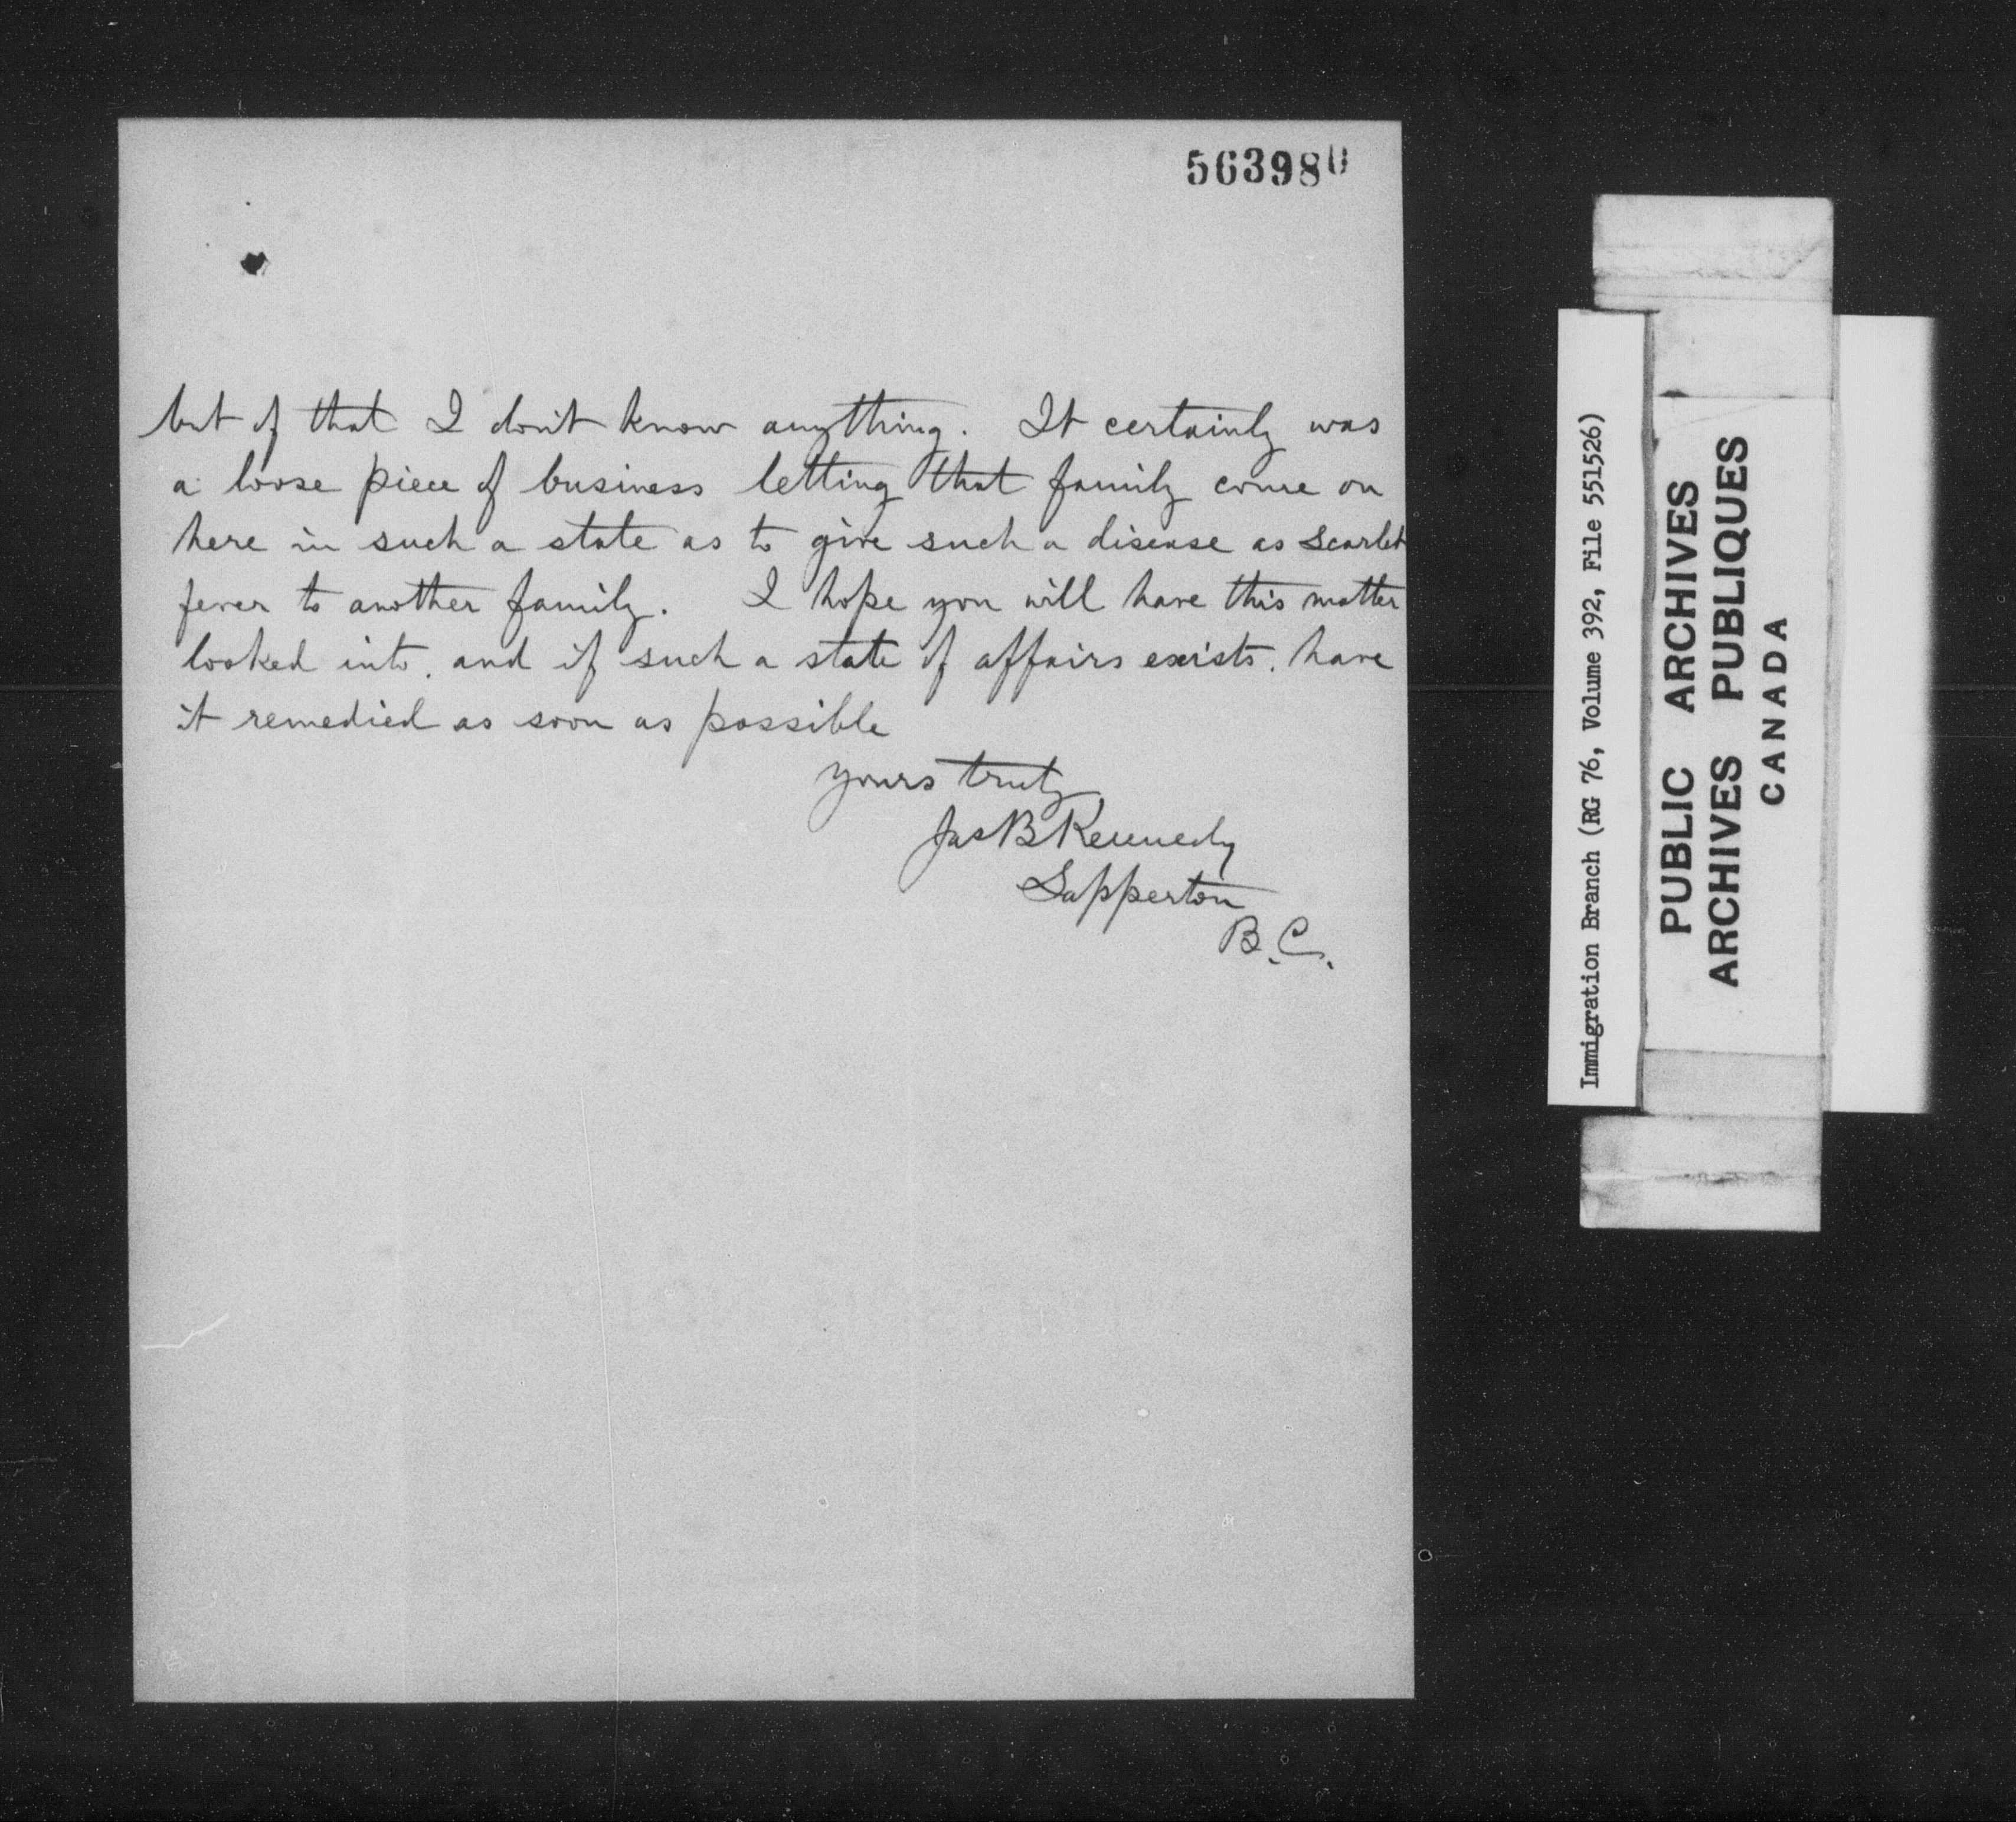 563980
but of that I don't know anything. It certainly was
a loose piece of business letting that family come on
here in such a state as to give such a disease as scarlet
fever to another family. I hope you will have this matter
looked into. and if such a state of affairs exists. have
it remedied as soon as possible
yours truly
Jas B Kennedy
Sapperton
B.C.
Immigration Branch (RG 76, Volume 392, File 551526)
PUBLIC ARCHIVES
ARCHIVES PUBLIQUES
CANADA